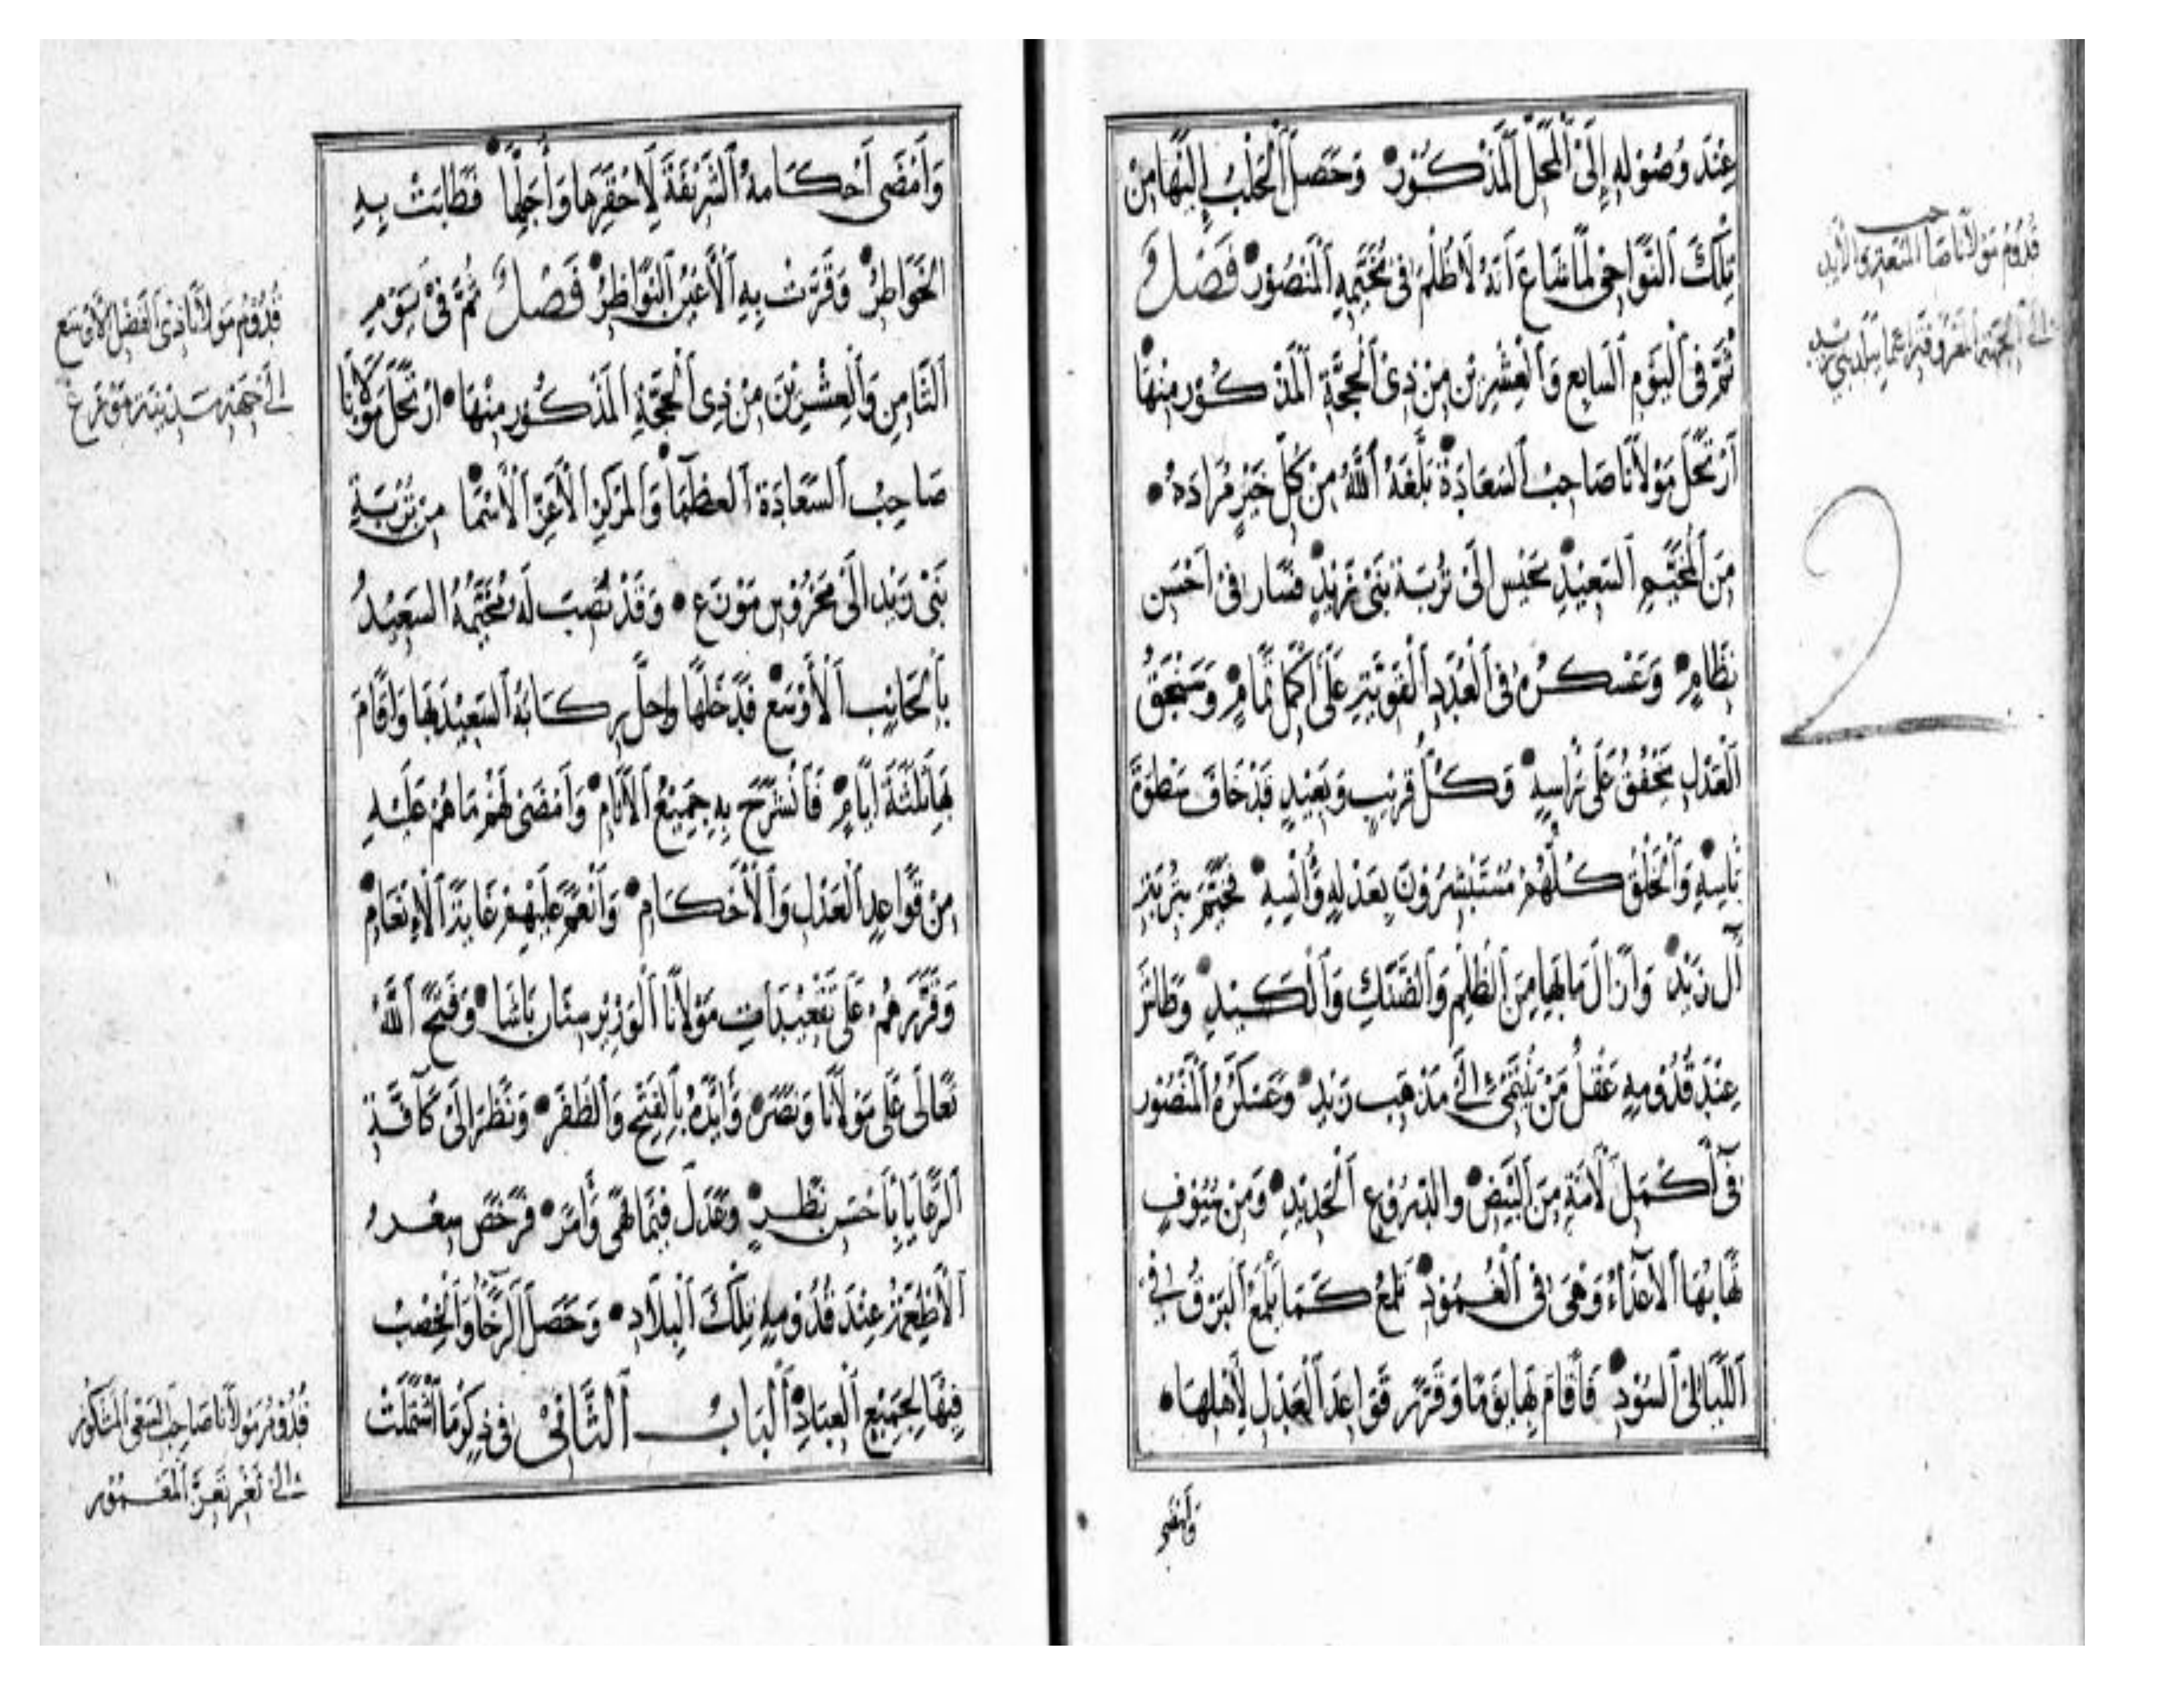 عِنْدَ وُصُولِهِ إِلَى الْمَحَلِّ الْمَذْكُورِ وَحَصَلَ الْجَلْبُ إِلَيْهَا مِنْ
تِلْكَ النَّوَاحِي لَمَّا شَاعَ أَنَّهُ لَا ظُلْمَ فِي مُخَيَّمِهِ الْمَنْصُورِ فَصْلٌ
ثُمَّ فِي الْيَوْمِ السَّابِعِ وَالْعِشْرِينَ مِنْ ذِي الْحِجَّةِ الْمَذْكُورِ مِنْهَا
ارْتَحَلَ مَوْلَانَا صَاحِبُ السَّعَادَةِ بَلَّغَهُ اللَّهُ مِنْ كُلِّ خَيْرٍ مُرَادَهُ
مِنَ الْمُخَيَّمِ السَّعِيدِ بِحَيْسٍ إِلَى تُرْبَةِ بَنِي زَيْدٍ فَسَارَ فِي أَحْسَنِ
نِظَامٍ وَعَسْكَرُهُ فِي الْعُدَدِ الْقَوِيَّةِ عَلَى أَكْمَلِ تَمَامٍ وَسَنْجَقُ
الْعَدْلِ يَخْفُقُ عَلَى رَأْسِهِ وَكُلُّ قَرِيبٍ وَبَعِيدٍ قَدْ خَافَ سَطْوَةَ
بَأْسِهِ وَالْخَلْقُ كُلُّهُمْ مُسْتَبْشِرُونَ بِعَدْلِهِ وَأُنْسِهِ فَخَيَّمَ بِتُرْبَةِ
آلِ زَيْدٍ وَأَزَالَ مَا بِهَا مِنَ الظُّلْمِ وَالضَّنْكِ وَالْكَبَدِ وَطَاشَ
عِنْدَ قُدُومِهِ عَقْلُ مَنْ يَنْتَمِي إِلَى مَذْهَبِ زَيْدٍ وَعَسْكَرُهُ الْمَنْصُورُ
فِي أَكْمَلِ لَامَةٍ مِنَ الْبَيْضِ وَالدُّرُوعِ الْحَدِيدِ وَمِنْ سُيُوفٍ
تَهَابُهَا الْأَعْدَاءُ وَهِيَ فِي الْغُمُودِ تَلْمَعُ كَمَا يَلْمَعُ الْبَرْقُ فِي
اللَّيَالِي السُّودِ فَأَقَامَ بِهَا يَوْمًا وَقَرَّرَ قَوَاعِدَ الْعَدْلِ لِأَهْلِهَا
وَأَمْضَى
قُدُومُ مَوْلَانَا صَاحِبِ
إِلَى الْجِهَةِ الْمَعْرُوفَةِ
2
وَأَمْضَى أَحْكَامَهُ الشَّرِيفَةَ لِأَحْقَرِهَا وَأَجَلِّهَا فَطَابَتْ بِهِ
الْخَوَاطِرُ وَقَرَّتْ بِهِ الْأَعْيُنُ النَّوَاظِرُ فَصْلٌ ثُمَّ فِي يَوْمِ
الثَّامِنِ وَالْعِشْرِينَ مِنْ ذِي الْحِجَّةِ الْمَذْكُورِ مِنْهَا ارْتَحَلَ مَوْلَانَا
صَاحِبُ السَّعَادَةِ الْعُظْمَا وَالْمَرْكَزِ الْأَعَزِّ الْأَسْمَا مِنْ تُرْبَةِ
بَنِي زَيْدٍ إِلَى مَوْزَعَ وَقَدْ نُصِبَ لَهُ مُخَيَّمُهُ السَّعِيدُ
بِالْجَانِبِ الْأَوْسَعِ فَدَخَلَهَا وَحَلَّ رِكَابُهُ السَّعِيدُ بِهَا وَأَقَامَ
بِهَا ثَلَاثَةَ أَيَّامٍ فَانْشَرَحَ بِهِ جَمِيعُ الْأَنَامِ وَأَمْضَى لَهُمْ مَا هُمْ عَلَيْهِ
مِنْ قَوَاعِدِ الْعَدْلِ وَالْأَحْكَامِ وَأَنْعَمَ عَلَيْهِمْ غَايَةَ الْإِنْعَامِ
وَقَرَّرَهُمْ عَلَى تَقْيِيدَاتِ مَوْلَانَا الْوَزِيرِ سِنَانَ بَاشَا وَفَتَحَ اللَّهُ
تَعَالَى عَلَى مَوْلَانَا وَنَصَرَهُ وَأَيَّدَهُ بِالْفَتْحِ وَالظَّفَرِ وَنَظَرَ إِلَى كَافَّةِ
الرَّعَايَا بِأَحْسَنِ نَظَرٍ وَعَدَلَ فِيمَا نَهَى وَأَمَرَ فَرَخُصَ سِعْرُ
الْأَطْعِمَةِ عِنْدَ قُدُومِهِ تِلْكَ الْبِلَادِ وَحَصَلَ الرَّخَاءُ وَالْخِصْبُ
فِيهَا لِجَمِيعِ الْعِبَادِ الْبَابُ الثَّانِي فِي ذِكْرِ مَا اشْتَمَلَتْ
قُدُومُ مَوْلَانَا ذِي الْفَضْلِ الْأَوْسَعِ
إِلَى جِهَةِ مَدِينَةِ مَوْزَعَ
قُدُومُ مَوْلَانَا صَاحِبِ السَّعْيِ الْمَشْكُورِ
إِلَى ثَغْرِ تَعِزَّ الْمَعْمُورِ